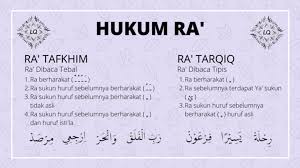 HUKUM RA'
RA' TAFKHIM
Ra' Dibaca Tebal
1. Ra berharakat
2. Ra sukun huruf sebelumnya berharakat
3. Ra sukun huruf sebelumnya berharakat ( ِ )
tidak asli
4. Ra sukun huruf sebelumnya berharakat ( ِ )
dan huruf isti'la
رَبِّ الْفَلَقِ وَانْحَرْ اِرْجِعِيْ مِرْصَدْ
RA' TARQIQ
Ra' Dibaca Tipis
1. Ra berharakat ( ِ )
2. Ra sukun sebelumnya terdapat Ya' sukun
3. Ra sukun huruf sebelumnya
berharakat ( ِ ) huruf asli
رِحْلَةَ يَسِيْرًا فِرْعَوْنَ